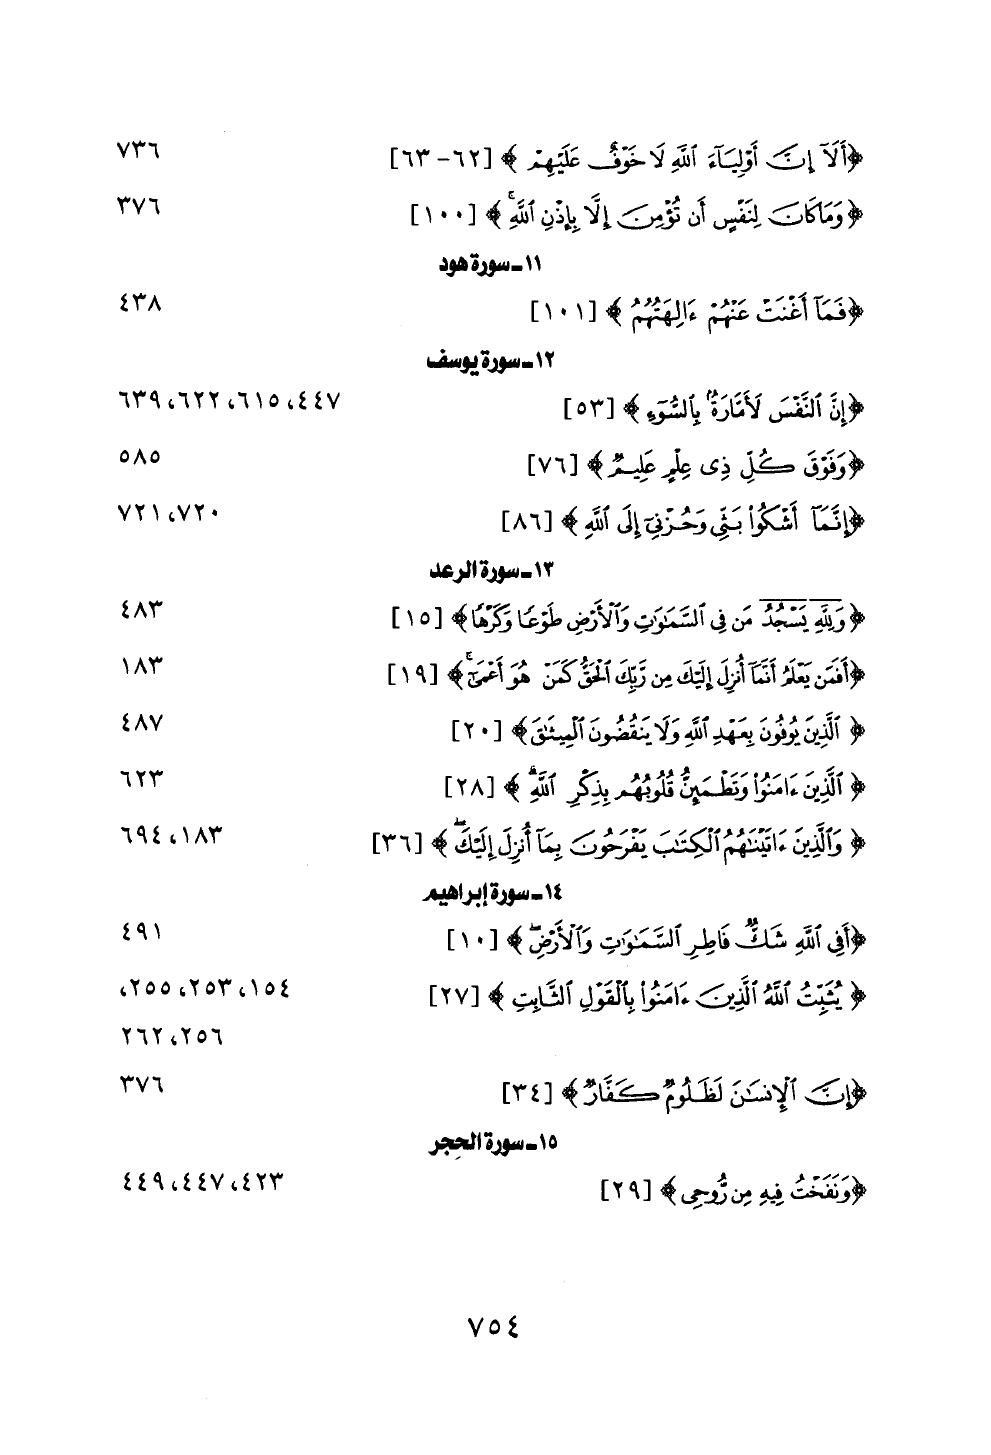 ﴿أَلَآ إِنَّ أَوْلِيَآءَ ٱللَّهِ لَا خَوْفٌ عَلَيْهِمْ﴾ [٦٢-٦٣] ٧٣٦
﴿وَمَا كَانَ لِنَفْسٍ أَن تُؤْمِنَ إِلَّا بِإِذْنِ ٱللَّهِۚ﴾ [١٠٠] ٣٧٦
١١ـ سورة هود
﴿فَمَآ أَغْنَتْ عَنْهُمْ ءَالِهَتُهُمُ﴾ [١٠١] ٤٣٨
١٢ـ سورة يوسف
﴿إِنَّ ٱلنَّفْسَ لَأَمَّارَةٌۢ بِٱلسُّوٓءِ﴾ [٥٣] ٤٤٧، ٦١٥، ٦٢٢، ٦٣٩
﴿وَفَوْقَ كُلِّ ذِى عِلْمٍ عَلِيمٌ﴾ [٧٦] ٥٨٥
﴿إِنَّمَآ أَشْكُوا۟ بَثِّى وَحُزْنِىٓ إِلَى ٱللَّهِ﴾ [٨٦] ٧٢٠، ٧٢١
١٣ـ سورة الرعد
﴿وَلِلَّهِ يَسْجُدُ مَن فِى ٱلسَّمَٰوَٰتِ وَٱلْأَرْضِ طَوْعًا وَكَرْهًا﴾ [١٥] ٤٨٣
﴿أَفَمَن يَعْلَمُ أَنَّمَآ أُنزِلَ إِلَيْكَ مِن رَّبِّكَ ٱلْحَقُّ كَمَنْ هُوَ أَعْمَىٰٓۚ﴾ [١٩] ١٨٣
﴿ٱلَّذِينَ يُوفُونَ بِعَهْدِ ٱللَّهِ وَلَا يَنقُضُونَ ٱلْمِيثَٰقَ﴾ [٢٠] ٤٨٧
﴿ٱلَّذِينَ ءَامَنُوا۟ وَتَطْمَئِنُّ قُلُوبُهُم بِذِكْرِ ٱللَّهِۗ﴾ [٢٨] ٦٢٣
﴿وَٱلَّذِينَ ءَاتَيْنَٰهُمُ ٱلْكِتَٰبَ يَفْرَحُونَ بِمَآ أُنزِلَ إِلَيْكَۖ﴾ [٣٦] ١٨٣، ٦٩٤
١٤ـ سورة إبراهيم
﴿أَفِى ٱللَّهِ شَكٌّ فَاطِرِ ٱلسَّمَٰوَٰتِ وَٱلْأَرْضِۖ﴾ [١٠] ٤٩١
﴿يُثَبِّتُ ٱللَّهُ ٱلَّذِينَ ءَامَنُوا۟ بِٱلْقَوْلِ ٱلثَّابِتِ﴾ [٢٧] ١٥٤، ٢٥٣، ٢٥٥،
٢٥٦، ٢٦٢
﴿إِنَّ ٱلْإِنسَٰنَ لَظَلُومٌ كَفَّارٌ﴾ [٣٤] ٣٧٦
١٥ـ سورة الحجر
﴿وَنَفَخْتُ فِيهِ مِن رُّوحِى﴾ [٢٩] ٤٢٣، ٤٤٧، ٤٤٩
٧٥٤